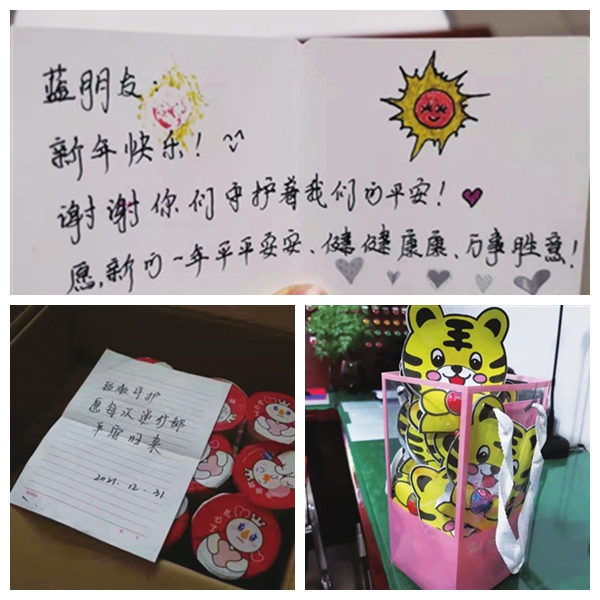 蓝朋友:
新年快乐! ^^
谢谢你们守护着我们的平安!
愿,新的一年平平安安、健健康康、万事胜意!
守护
愿每次逆行都
平安归来
2021.12.31.